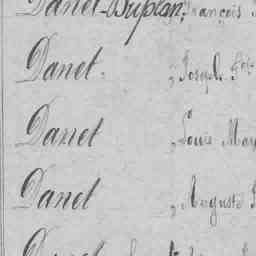 Danet-Duplan, François
Danet. , Joseph
Danet , Louis
Danet , Auguste
Danet